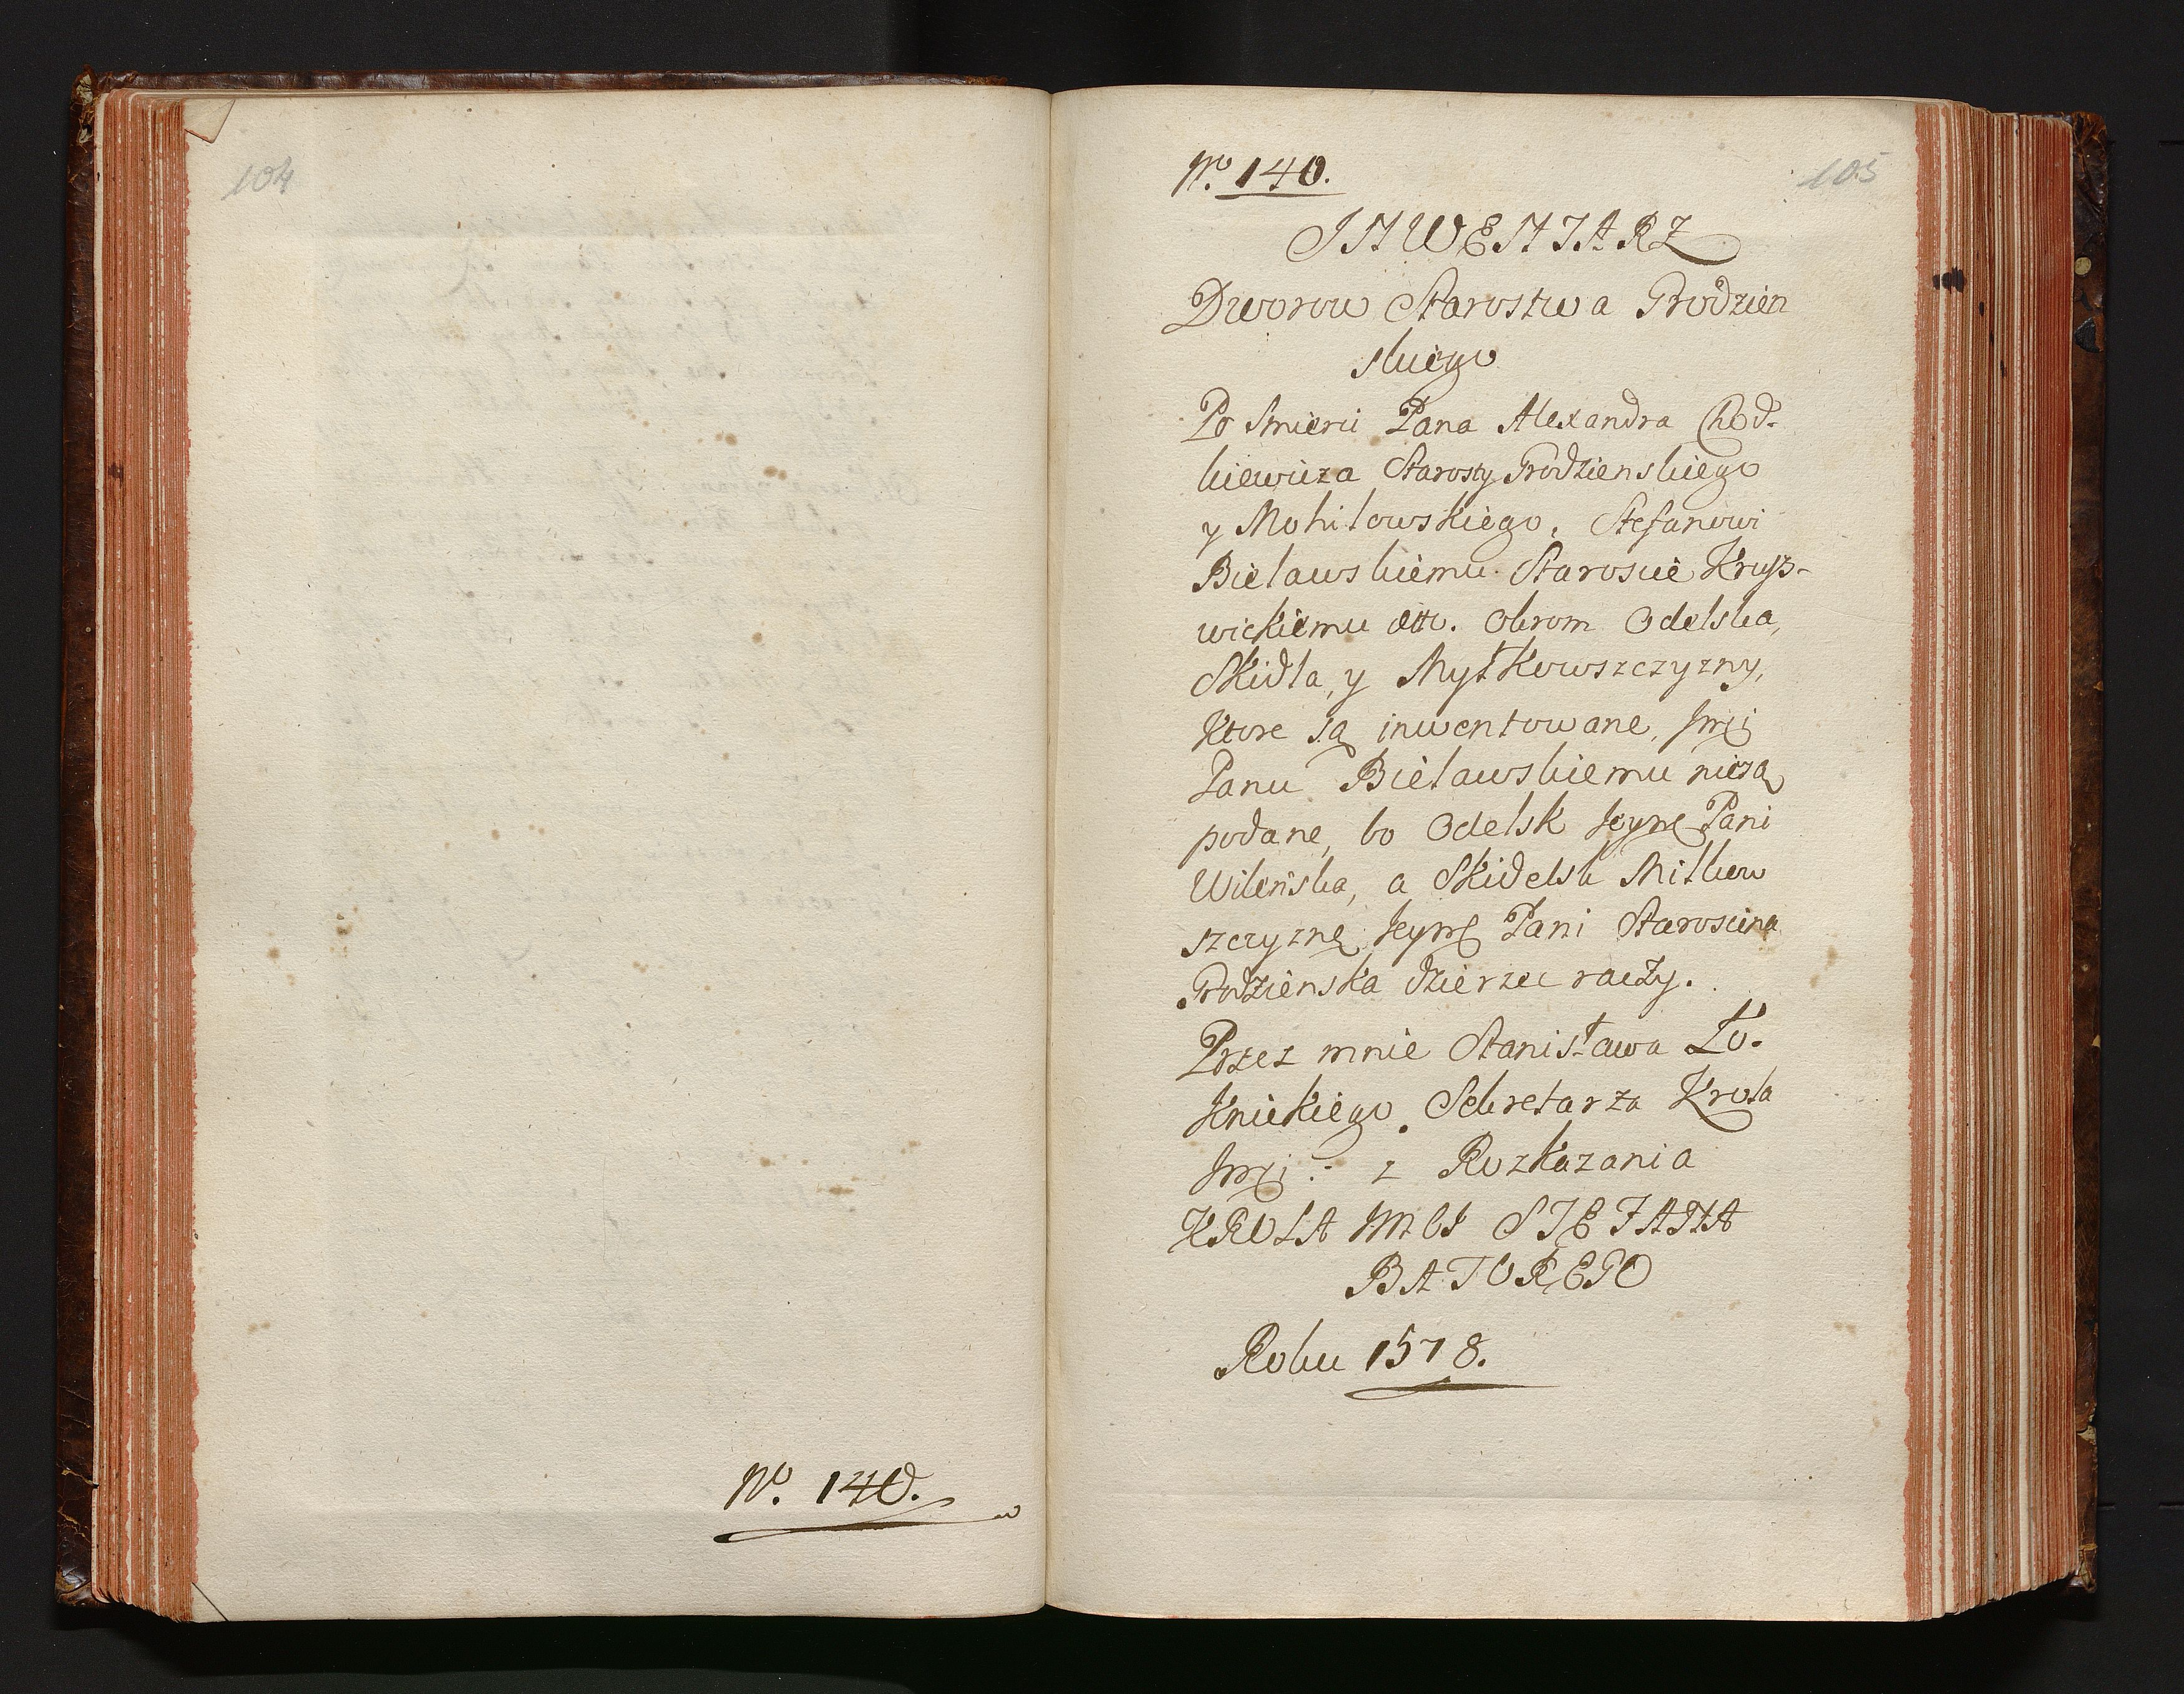 104
No. 140.
105
No. 140.
INWENTARZ
Dworow Starostwa Grodzien
skiego
Po Smierci Pana Alexandra Chod-
kiewicza Starosty Grodzienskiego
y Mohilowskiego, Stefanowi
Bielawskiemu Staroscie Krusz-
wickiemu etc. Okrom Odelska,
Skidla, y Mytkowszczyzny,
Ktore są inwentowane, Jmći
Panu Bielawskiemu niesą
podane, bo Odelsk Jeymć Pani
Wileńska, a Skidelsk Mitkow
szczyznę Jeymć Pani Staroscina
Grodzienska dzierzec raczy.
Przez mnie Stanisława Ło-
knickiego Sekretarza Krola
Jmći: z Rozkazania
KROLA JMCI STEFANA
BATOREGO
Roku 1578.